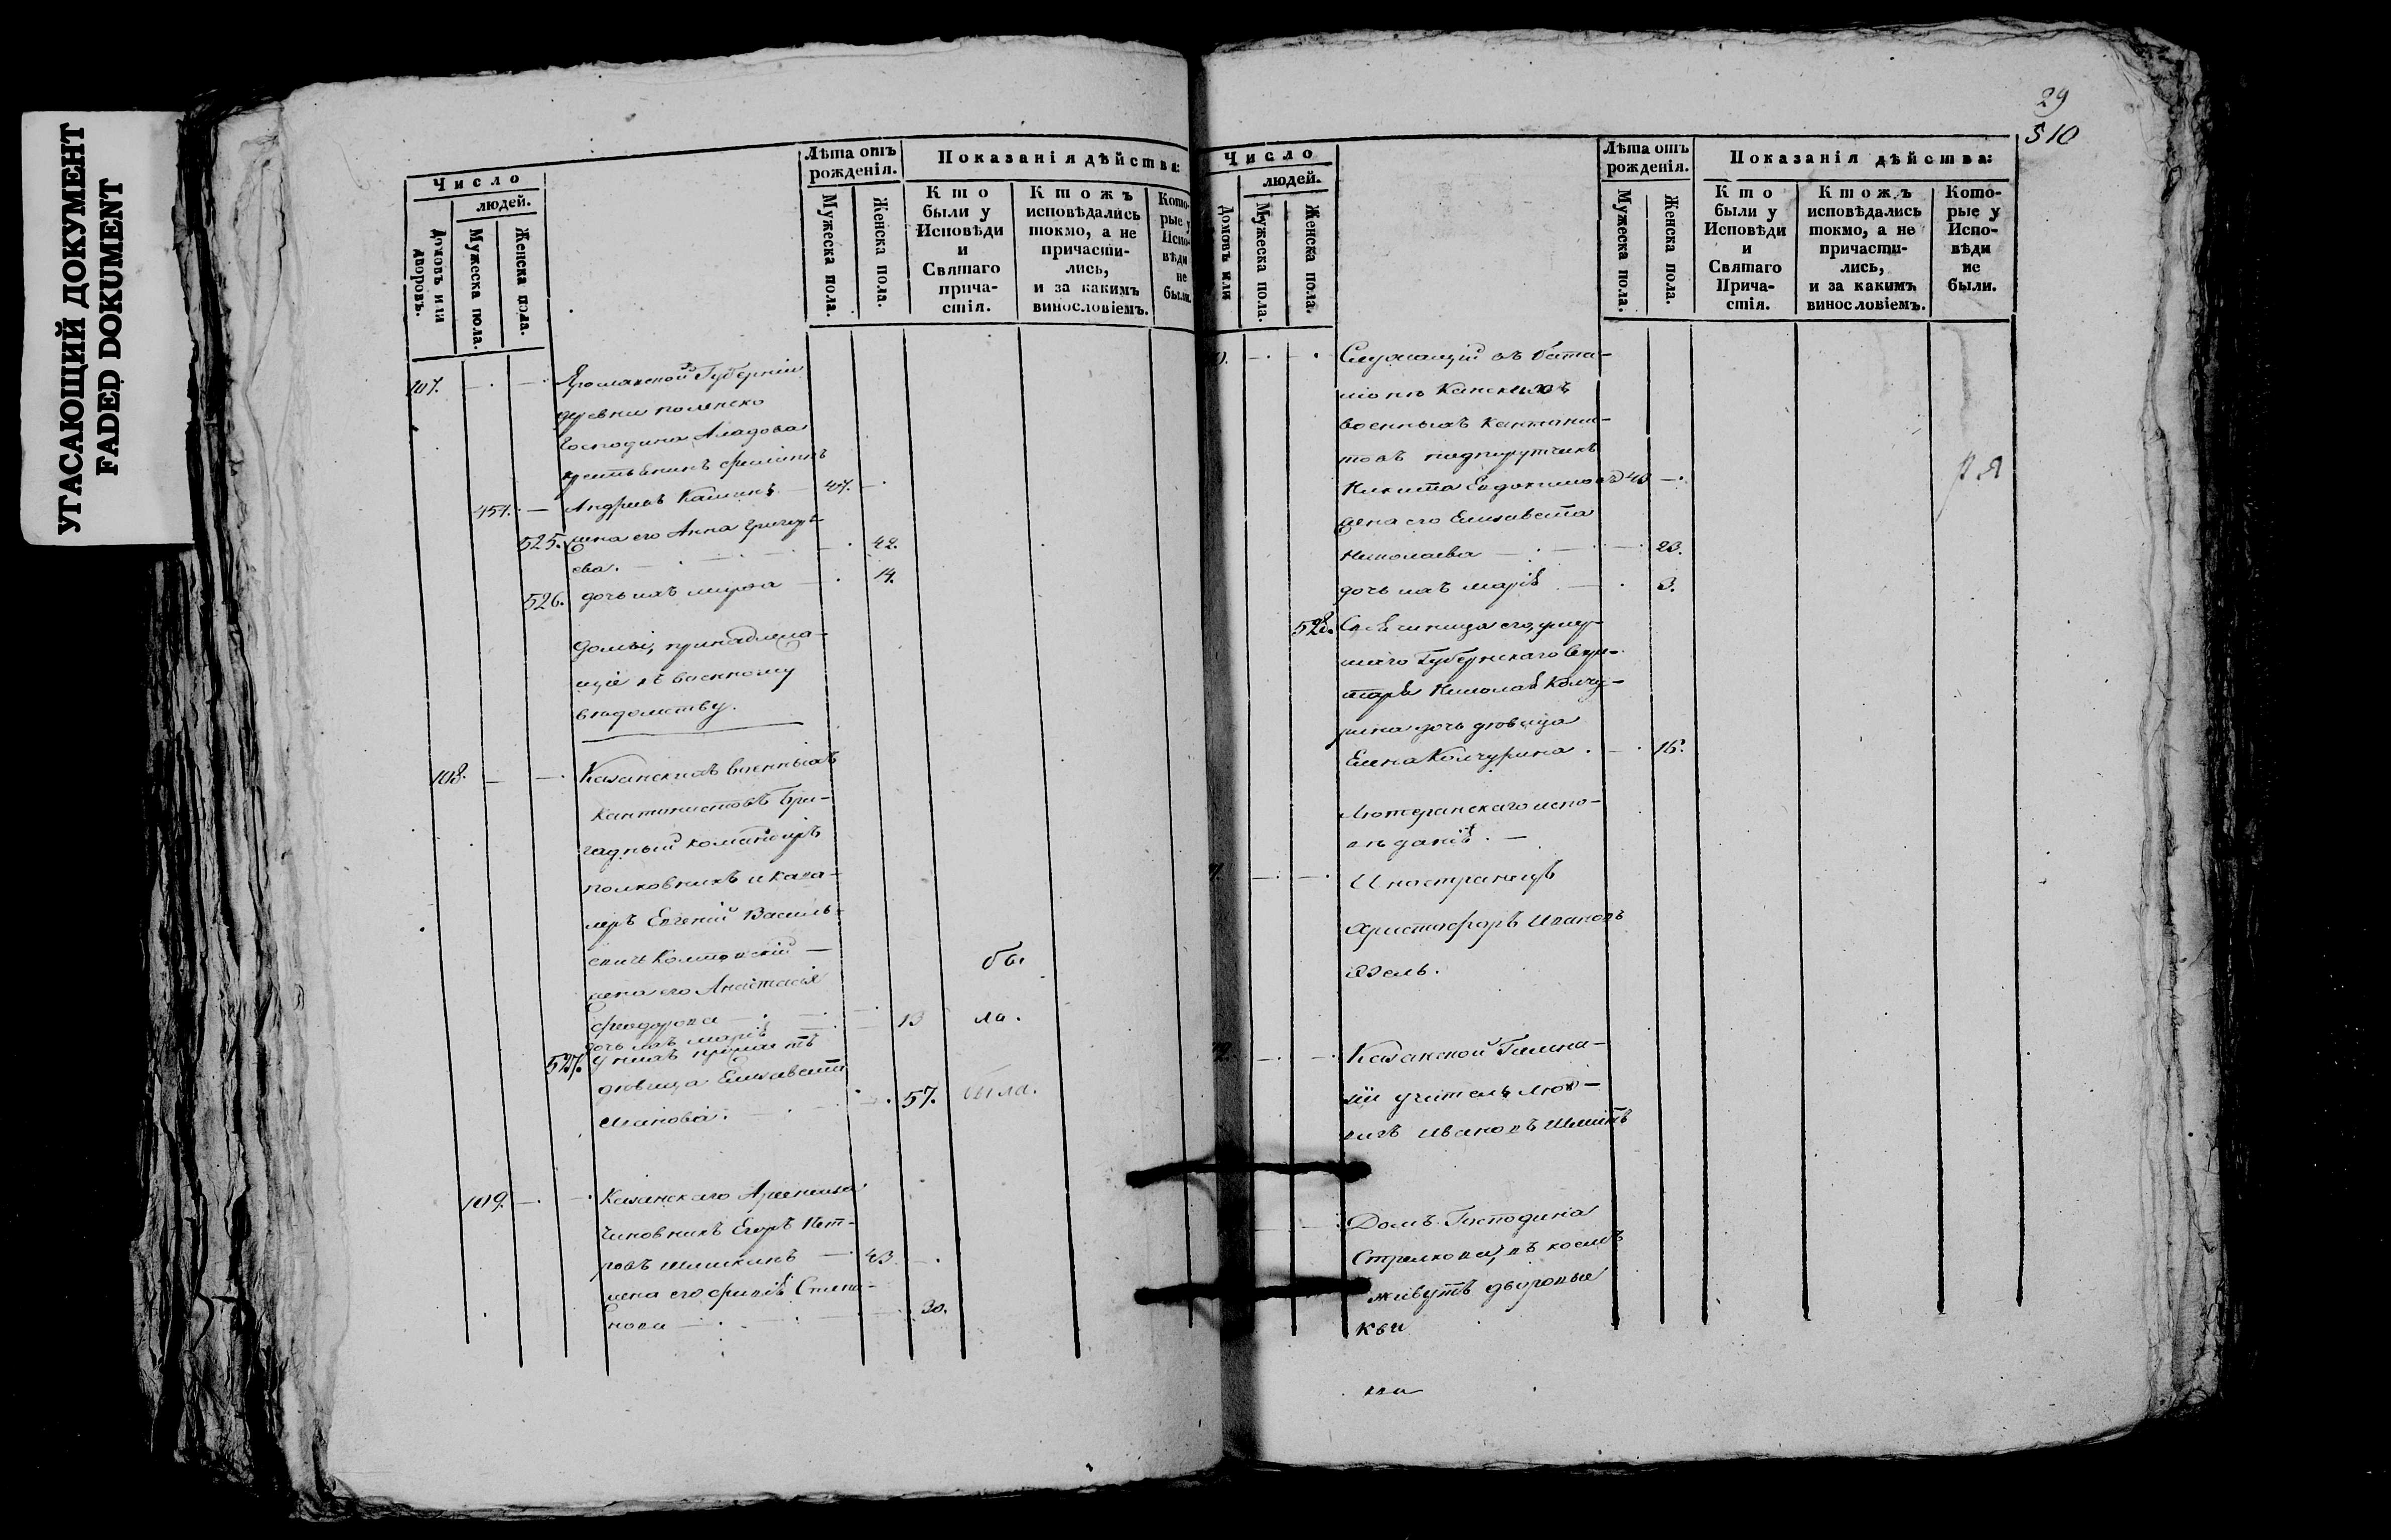 УГАСАЮЩИЙ ДОКУМЕНТ
FADED DOKUMENT
Число
людей.
Домовъ или дворовъ.
Мужеска пола.
Женска пола.
Лѣта отъ рожденія.
Мужеска пола.
Женска пола.
Показанія дѣйства:
Кто были у Исповѣди и Святаго прича-стія.
Ктожъ исповѣдались токмо, а не причасти-лись, и за какимъ винословіемъ.
Кото-рые у Испо-вѣди не были.
107. — — Ярославской Губерніи
деревни
Господина Аладова
крестьянинъ Филиппъ
457. — Андреевъ — 47. —
525. жена его Анна Григорь-
ева. — 42.
526. дочь ихъ — 14.
Домы, принадлежа-
щіе къ военному
вѣдомству.
108. — — Казанскихъ военныхъ
кантонистовъ Бри-
гадный командиръ
полковникъ и кава-
леръ Евгеній Василь-
евичь —
жена его Анастасія бы
Феодорова — 13 ла.
дочь ихъ Марія
527. у нихъ
дѣвица Елисавета
Иванова. — 57. была.
109. — — Казанскаго Арсенала
чиновникъ Егоръ Пет-
ровъ Шишкинъ — 43. —
жена его Степа-
нова — 30.
29
510
Число
людей.
Домовъ или
Мужеска пола.
Женска пола.
Лѣта отъ рожденія.
Мужеска пола.
Женска пола.
Показанія дѣйства:
Кто были у Исповѣди и Святаго Прича-стія.
Ктожъ исповѣдались токмо, а не причасти-лись, и за какимъ винословіемъ.
Кото-рые у Испо-вѣди не были.
0. — — Служащій въ бата-
ліонѣ
военныхъ кантони-
стовъ подпорутчикъ
Никита Евдокимовъ 40 —
жена его Елисавета
Николаева — 23.
дочь ихъ Марія — 3.
528. его, умер-
шаго Губернскаго Секре-
таря Николая Колчу-
рина дочь дѣвица
Елена Колчурина. — 16.
Лютеранскаго испо-
вѣданія. —
— — Иностранецъ
Христофоръ Ивановъ
— — Казанской Гимна-
зіи учитель Люд-
вигъ Ивановъ Шмитъ
Домъ Господина
Стрелкова, въ коемъ
живутъ дворовые